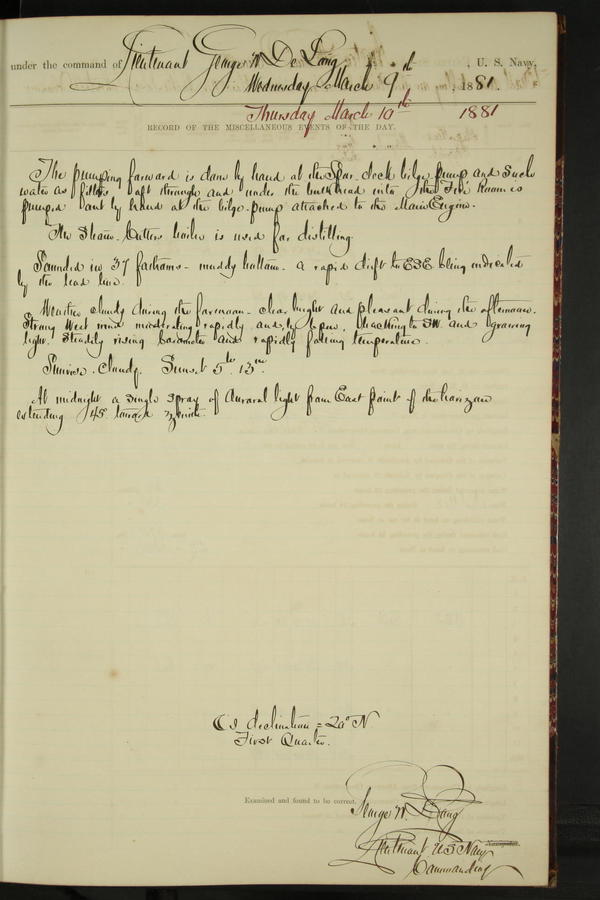 under the command of Lieutenant George W De Long, U. S. Navy,
Wednesday March 9th, 1881.
Thursday March 10th 1881
RECORD OF THE MISCELLANEOUS EVENTS OF THE DAY.
The pumping forward is done by hand at the Spar deck bilge pump and such
water as filters aft through and under the bulkhead into the Fire Room is
pumped out by hand at the bilge pump attached to the Main Engine.
The Steam Cutters boiler is used for distilling.
Sounded in 37 fathoms - muddy bottom - a rapid drift to ESE being indicated
by the lead line.
Weather cloudy during the forenoon - clear bright and pleasant during the afternoon.
Strong West wind moderating rapidly and, backing to SW and growing
light. Steadily rising barometer and rapidly falling temperature.
Sunrise - cloudy. Sunset 5h 13m.
At midnight a single spray of Auroral light from East point of the horizon
extending 45° toward zenith.
☾'s declination = 20° N
First Quarter.
Examined and found to be correct.
George W De Long
Lieutenant U.S. Navy
Commanding